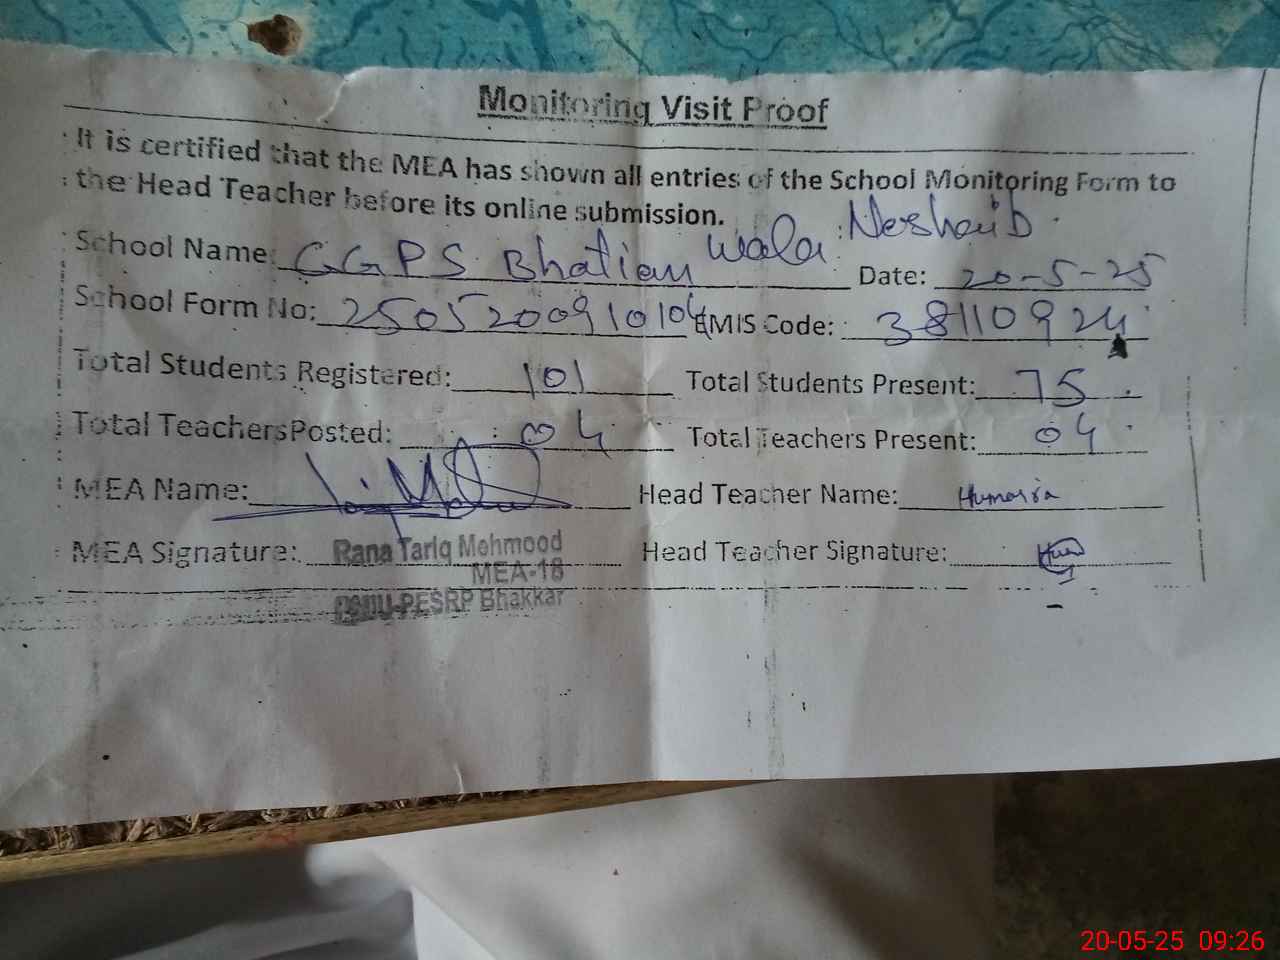 Monitoring Visit Proof
It is certified that the MEA has shown all entries of the School Monitoring Form to
the Head Teacher before its online submission.
School Name: GGPS Bhatian Wala Neshaib Date: 20-5-25
School Form No: 2505200910104 EMIS Code: 38110924
Total Students Registered: 101 Total Students Present: 75
Total TeachersPosted: 04 Total Teachers Present: 04
MEA Name: Head Teacher Name: Humaira
MEA Signature: Rana Tariq Mehmood Head Teacher Signature:
MEA-18
PMIU-PESRP Bhakkar
20-05-25 09:26